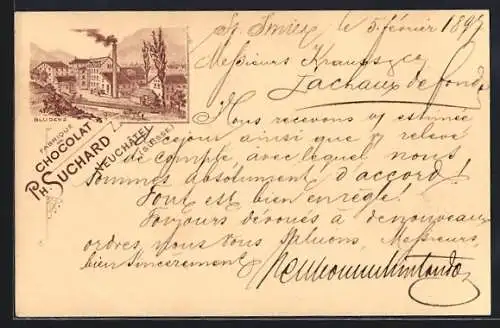 BLUDENZ
FABRIQUE
CHOCOLAT
PH. SUCHARD
NEUCHÂTEL
(SUISSE)
St. Imier le 5 février 1897
Messieurs Krauss & Cie
Lachaux de fonds
Nous recevons v/ estimée
de ce jour ainsi que v/ relevé
de compte, avec lequel nous
sommes absolument d'accord!
Tout est bien en règle!
Toujours dévoués à de nouveaux
ordres, nous vous saluons, Messieurs,
bien sincèrement